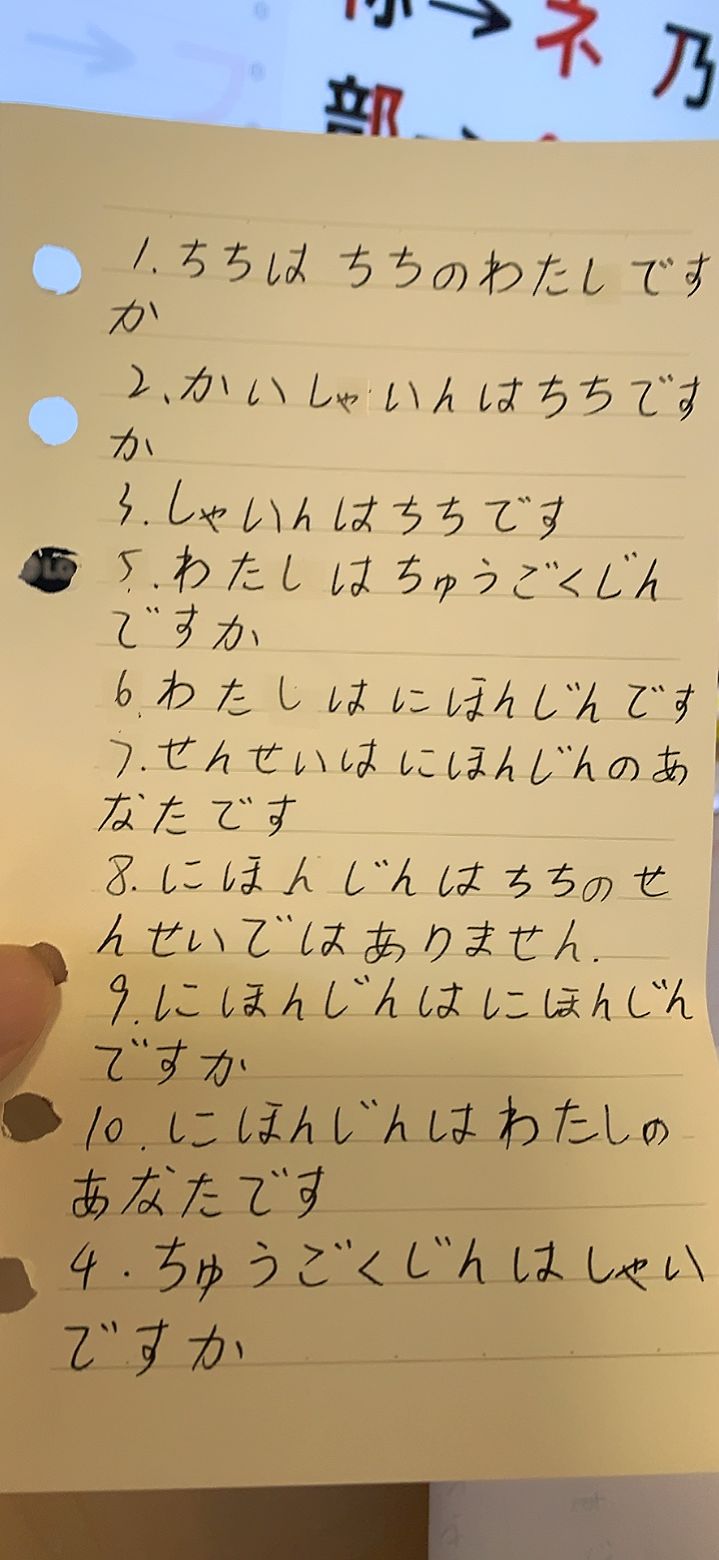 → ネ 乃
部
1. ちちは ちちのわたしです
か
2、かいしゃいんはちちです
か
3. しゃいんはちちです
5. わたしはちゅうごくじん
ですか
6. わたしはにほんじんです
7. せんせいはにほんじんのあ
なたです
8. にほんじんはちちのせ
んせいではありません.
9. にほんじんはにほんじん
ですか
10. にほんじんはわたしの
あなたです
4. ちゅうごくじんはしゃい
ですか